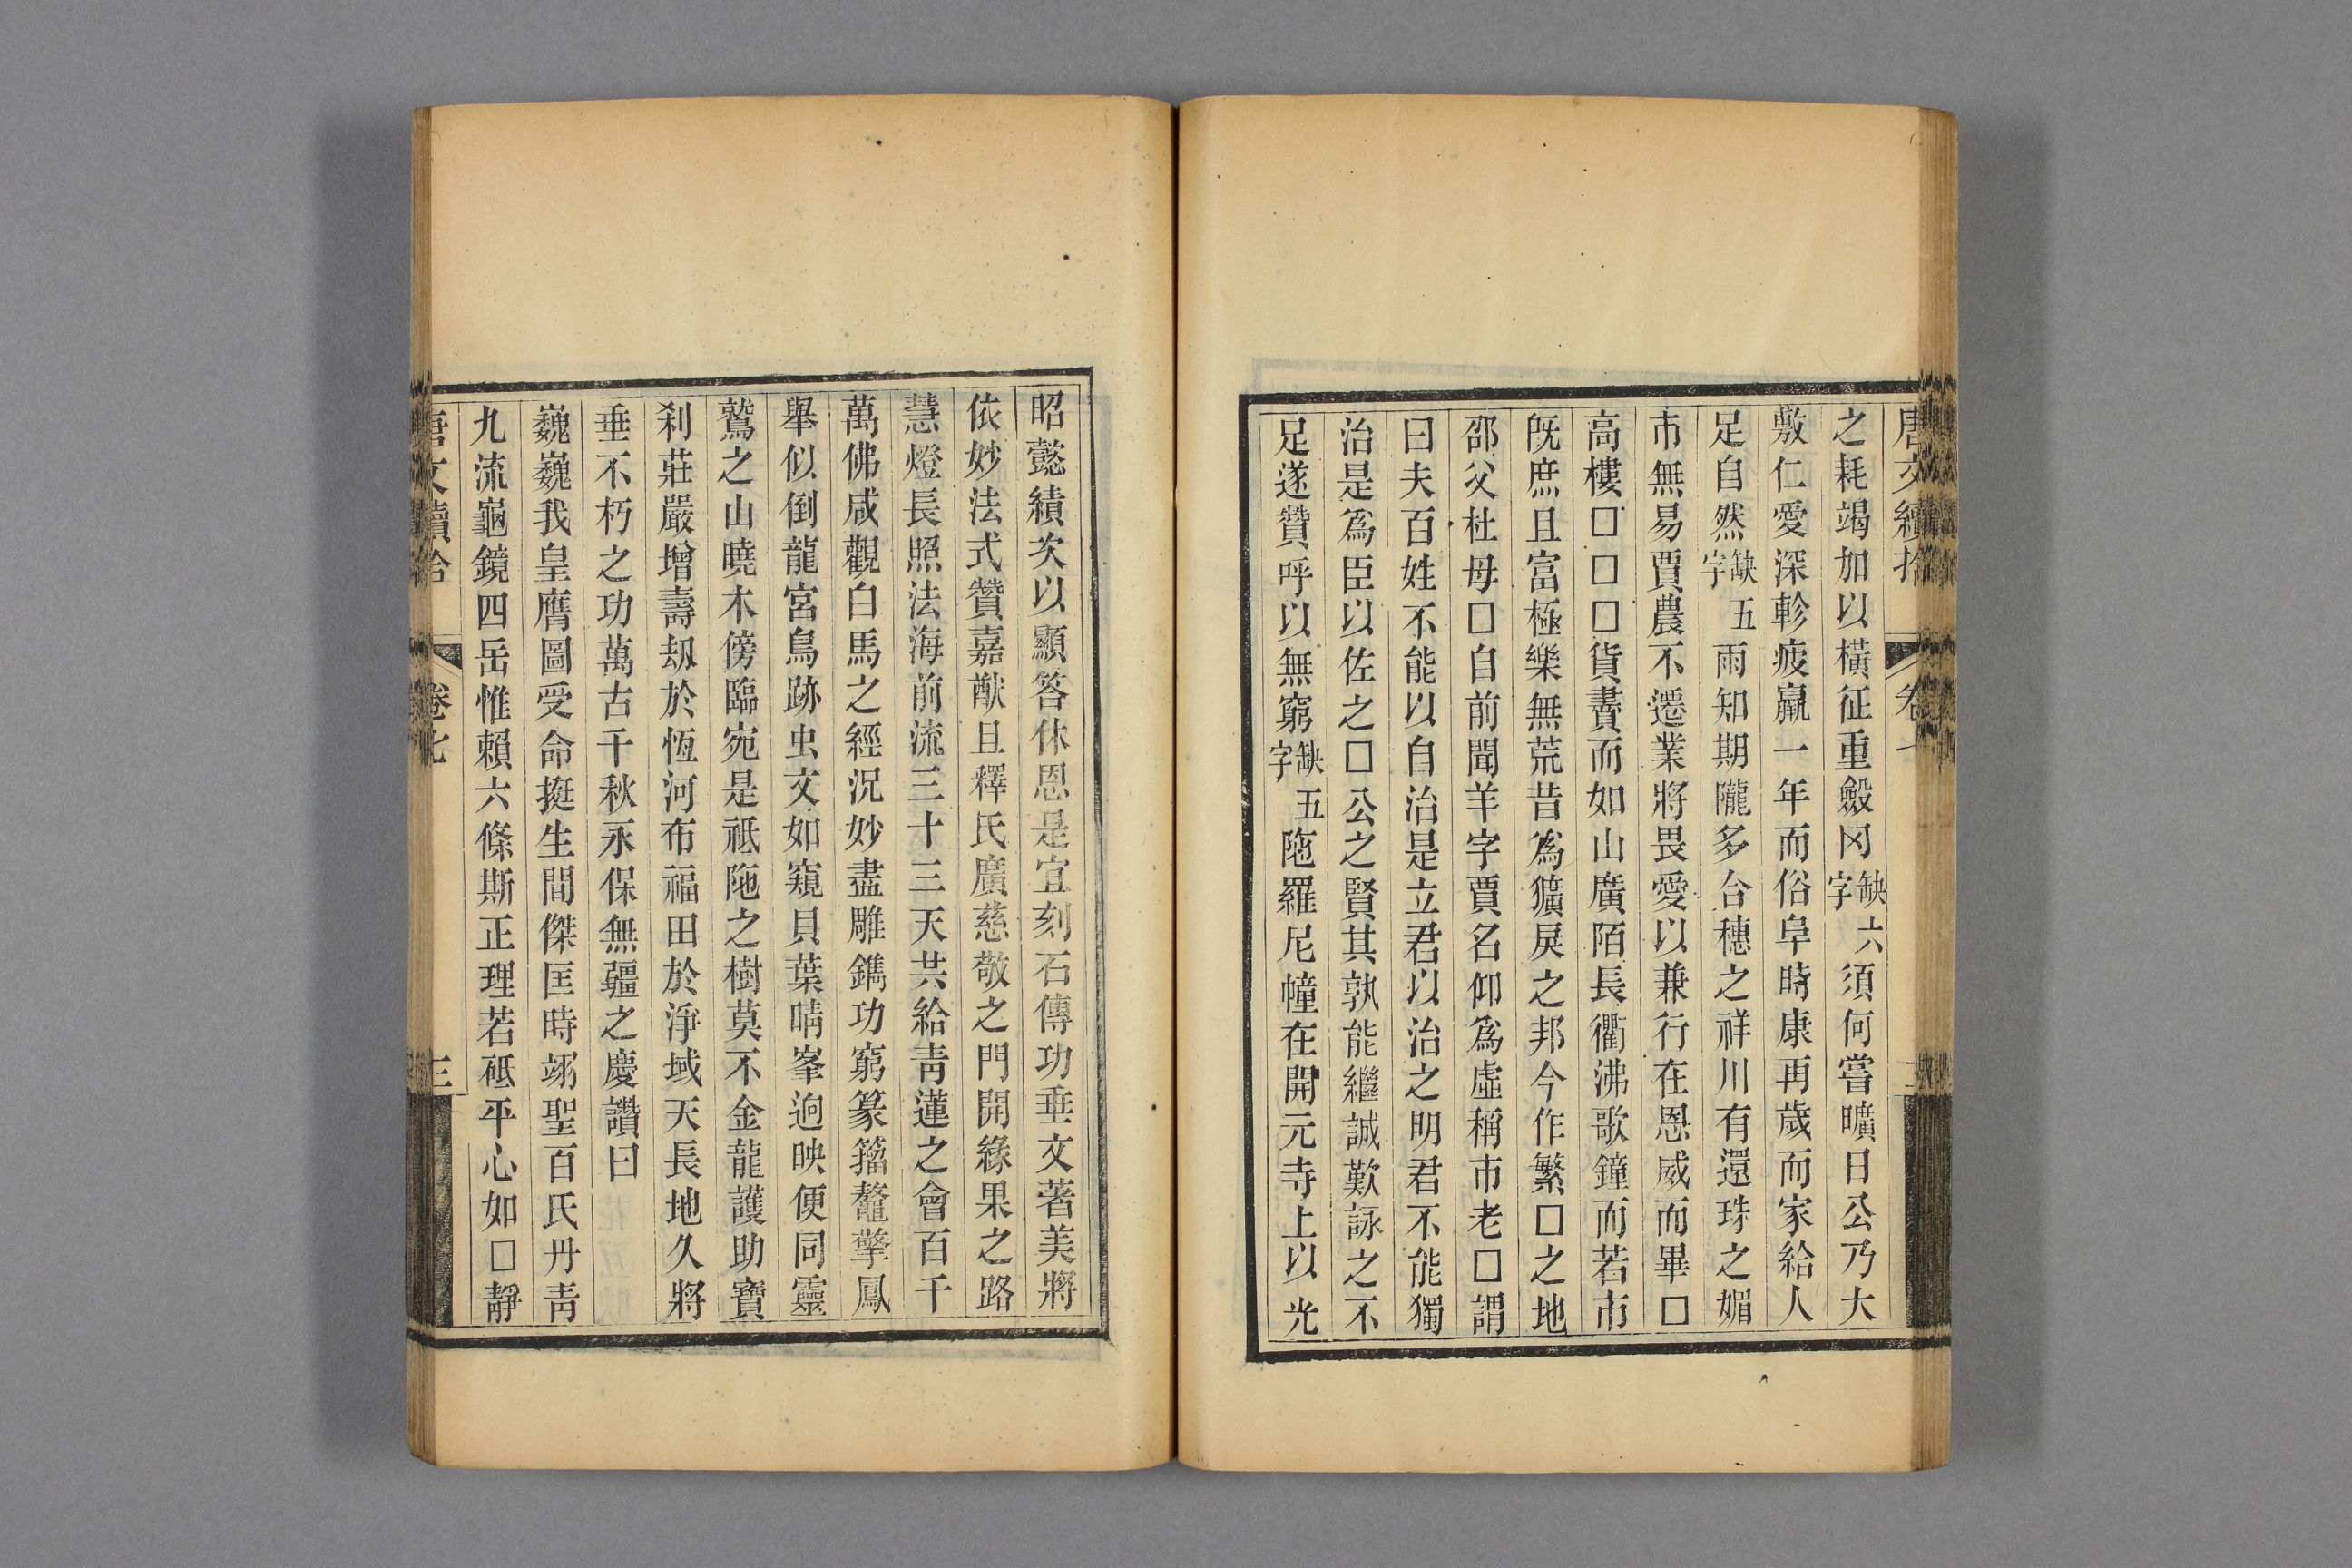 唐文續拾 卷七
之耗竭加以橫征重斂冈缺六字須何嘗曠日公乃大
敷仁愛深軫疲羸一年而俗阜時康再歲而家給人
足自然缺五字雨知期隴多合穗之祥川有還珠之媚
市無易賈農不遷業將畏愛以兼行在恩威而畢□
高樓□□□貨賮而如山廣陌長衢沸歌鐘而若市
旣庶且富極樂無荒昔爲獷戾之邦今作繁□之地
邵父杜母□自前聞羊字賈名仰爲虛稱市老□謂
曰夫百姓不能以自治是立君以治之明君不能獨
治是爲臣以佐之□公之賢其孰能繼誠歎詠之不
足遂贊呼以無窮缺五字陁羅尼幢在開元寺上以光
昭懿績次以顯答休恩是宜刻石傳功垂文著美將
依妙法式贊嘉猷且釋氏廣慈敬之門開緣果之路
慧燈長照法海前流三十三天共給靑蓮之會百千
萬佛咸觀白馬之經況妙盡雕鐫功窮篆籀鼇擎鳳
舉似倒龍宮鳥跡虫文如窺貝葉晴峯逈映便同靈
鷲之山曉木傍臨宛是祗陁之樹莫不金龍護助寶
刹莊嚴增壽劫於恆河布福田於淨域天長地久將
垂不朽之功萬古千秋永保無疆之慶讚曰
巍巍我皇膺圖受命挺生間傑匡時翊聖百氏丹靑
九流龜鏡四岳惟賴六條斯正理若砥平心如□靜
唐文續拾 卷七 三